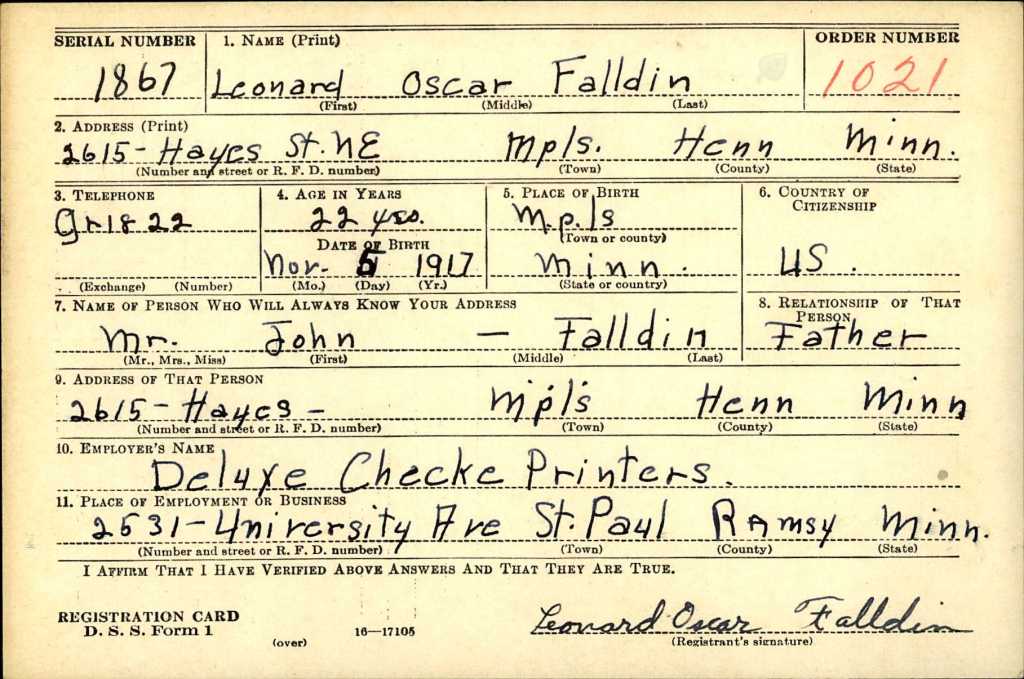 SERIAL NUMBER 1. NAME (Print) ORDER NUMBER
1867 Leonard Oscar Falldin 1021
(First) (Middle) (Last)
2. ADDRESS (Print)
2615- Hayes St. NE Mpls. Henn Minn.
(Number and street or R. F. D. number) (Town) (County) (State)
3. TELEPHONE 4. AGE IN YEARS 5. PLACE OF BIRTH 6. COUNTRY OF CITIZENSHIP
Gr 1822 22 yrs. M.p.ls
(Town or county)
DATE OF BIRTH
Nov. 5 1917 Minn. US.
(Exchange) (Number) (Mo.) (Day) (Yr.) (State or country)
7. NAME OF PERSON WHO WILL ALWAYS KNOW YOUR ADDRESS 8. RELATIONSHIP OF THAT PERSON
Mr. John — Falldin Father
(Mr., Mrs., Miss) (First) (Middle) (Last)
9. ADDRESS OF THAT PERSON
2615- Hayes - Mpls Henn Minn
(Number and street or R. F. D. number) (Town) (County) (State)
10. EMPLOYER'S NAME
Deluxe Checke Printers.
11. PLACE OF EMPLOYMENT OR BUSINESS
2531- University Ave St. Paul Ramsy Minn.
(Number and street or R. F. D. number) (Town) (County) (State)
I AFFIRM THAT I HAVE VERIFIED ABOVE ANSWERS AND THAT THEY ARE TRUE.
REGISTRATION CARD
D. S. S. Form 1 (over) 16—17105
Leonard Oscar Falldin
(Registrant's signature)